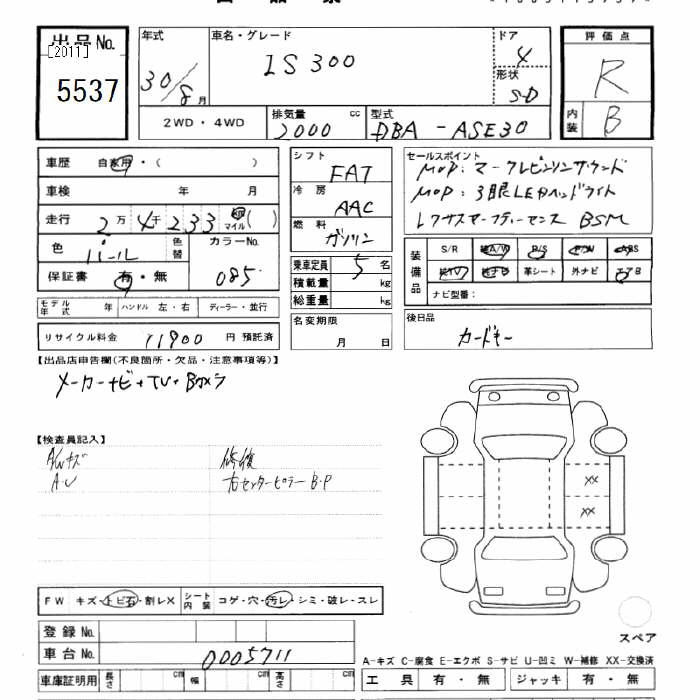 出品No.
[2011]
5537
年式
30/8月
車名・グレード
IS300
ドア
4
形状
S-D
評価点
R
内装
B
2WD・4WD
排気量 cc
2000
型式
DBA-ASE30
車歴 自家用・( )
車検 年 月
走行 2万4千233 km マイル( )
色 パール 色替
カラーNo.
085
保証書 有・無
モデル年式 年 ハンドル 左・右 ディーラー・並行
リサイクル料金 11900 円 預託済
シフト
FAT
冷房
AAC
燃料
ガソリン
乗車定員 5 名
積載量 kg
総重量 kg
名変期限
月 日
セールスポイント
MOP:マークレビンソンサウンド
MOP:3眼LEDヘッドライト
レクサスセーフティーセンス BSM
装備品
S/R 純A/W P/S P/W ABS
純TV 純ナビ 革シート 外ナビ エアB
ナビ型番:
後日品
カードキー
【出品店申告欄(不良箇所・欠品・注意事項等)】
メーカーナビ+TV+Bカメラ
【検査員記入】
A/Wキズ 修復
A・U 右センターピラー B・P
XX
XX
FW キズ・トビ石・割レX シート内装 コゲ・穴・汚レ・シミ・破レ・スレ
登録No.
車台No. 0005711
車庫証明用 長さ cm 幅 cm 高さ cm
スペア
A-キズ C-腐食 E-エクボ S-サビ U-凹ミ W-補修 XX-交換済
工具 有・無 ジャッキ 有・無